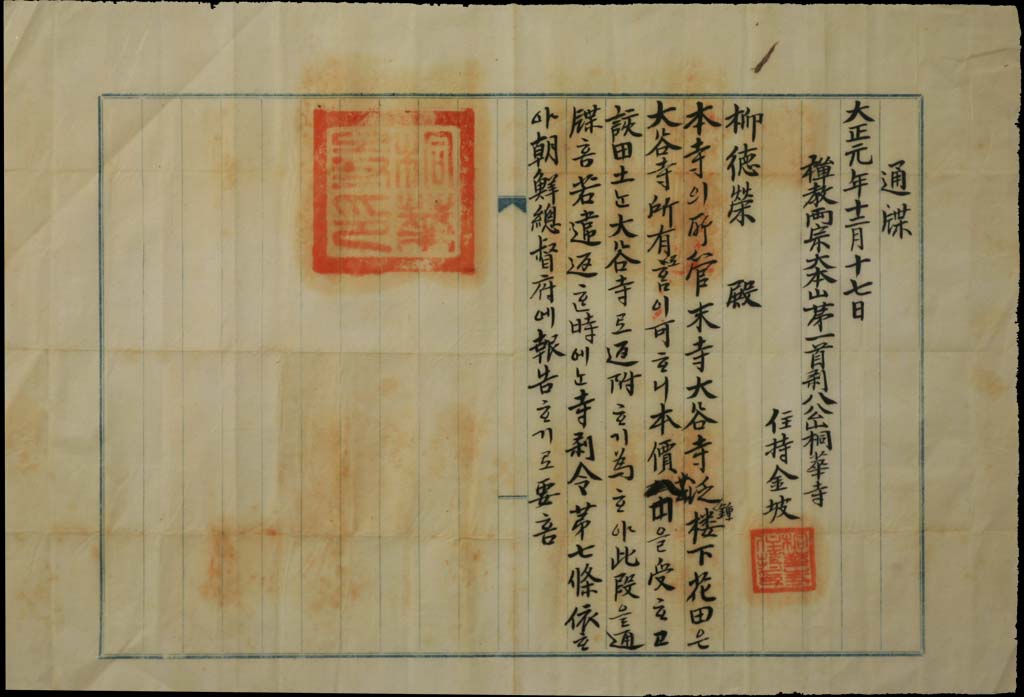 通牒
大正元年十二月十七日
禪教両宗大本山第一首刹八公山桐華寺
住持金坡
柳徳榮 殿
本寺의所管末寺大谷寺泛鍾楼下花田은
大谷寺所有이可ᄒᆞ니本價円을受ᄒᆞ고
該田土ᄂᆞᆫ大谷寺로返附ᄒᆞ기為ᄒᆞ야此段을通
牒홈若違返ᄒᆞᆫ時에ᄂᆞᆫ寺刹令第七條依ᄒᆞ
야朝鮮總督府에報告ᄒᆞ기로要홈